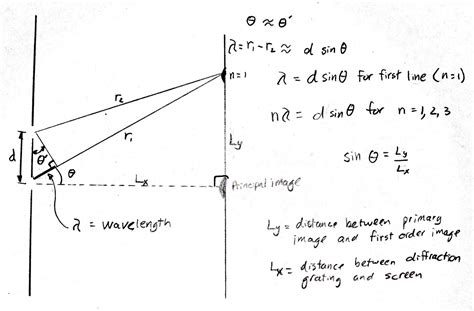 θ ≈ θ'
λ = r₁ - r₂ ≈ d sin θ
n=1
λ = d sin θ for first line (n=1)
r₂
nλ = d sin θ for n = 1, 2, 3
r₁
d
θ'
θ
Ly
sin θ = Ly/Lx
Lx
Principal image
λ = wavelength
Ly = distance between primary
image and first order image
Lx = distance between diffraction
grating and screen